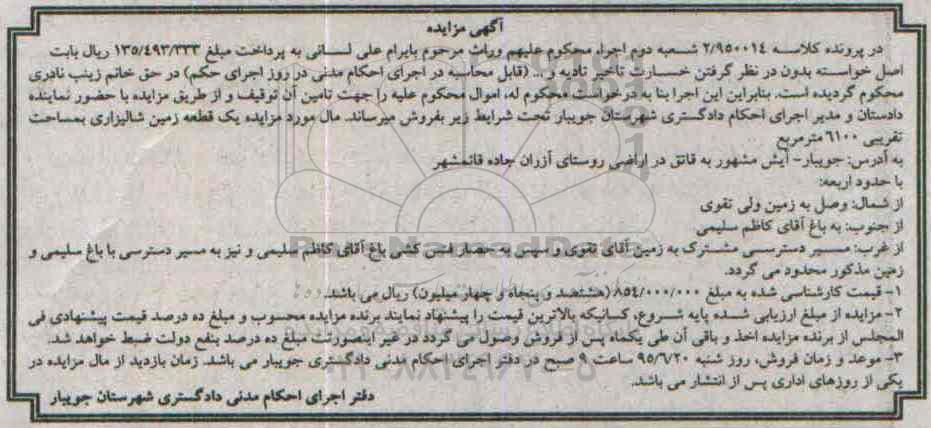 آگهی مزایده
در پرونده کلاسه ۲/۹۵۰۰۱۴ شعبه دوم اجراء محکوم علیهم وراث مرحوم بایرام علی لسانی به پرداخت مبلغ ۱۳۵/۴۹۳/۳۳۳ ریال بابت
اصل خواسته بدون در نظر گرفتن خسارت تاخیر تادیه و ... (قابل محاسبه در اجرای احکام مدنی در روز اجرای حکم) در حق خانم زینب نادری
محکوم گردیده است. بنابراین این اجرا بنا به درخواست محکوم له، اموال محکوم علیه را جهت تامین آن توقیف و از طریق مزایده با حضور نماینده
دادستان و مدیر اجرای احکام دادگستری شهرستان جویبار تحت شرایط زیر بفروش میرساند. مال مورد مزایده یک قطعه زمین شالیزاری بمساحت
تقریبی ۶۱۰۰ مترمربع
به آدرس: جویبار- آیش مشهور به قانق در اراضی روستای آزران جاده قائمشهر
با حدود اربعه:
از شمال: وصل به زمین ولی تقوی
از جنوب: به باغ آقای کاظم سلیمی
از غرب: مسیر دسترسی مشترک به زمین آقای تقوی و سپس به حصار فنس کشی باغ آقای کاظم سلیمی و نیز به مسیر دسترسی با باغ سلیمی و
زمین مذکور محدود می گردد.
۱- قیمت کارشناسی شده به مبلغ ۸۵۴/۰۰۰/۰۰۰ (هشتصد و پنجاه و چهار میلیون) ریال می باشد.
۲- مزایده از مبلغ ارزیابی شده پایه شروع، کسانیکه بالاترین قیمت را پیشنهاد نمایند برنده مزایده محسوب و مبلغ ده درصد قیمت پیشنهادی فی
المجلس از برنده مزایده اخذ و باقی آن طی یکماه پس از فروش وصول می گردد در غیر اینصورت مبلغ ده درصد بنفع دولت ضبط خواهد شد.
۳- موعد و زمان فروش، روز شنبه ۹۵/۶/۲۰ ساعت ۹ صبح در دفتر اجرای احکام مدنی دادگستری جویبار می باشد. زمان بازدید از مال مزایده در
یکی از روزهای اداری پس از انتشار می باشد.
دفتر اجرای احکام مدنی دادگستری شهرستان جویبار